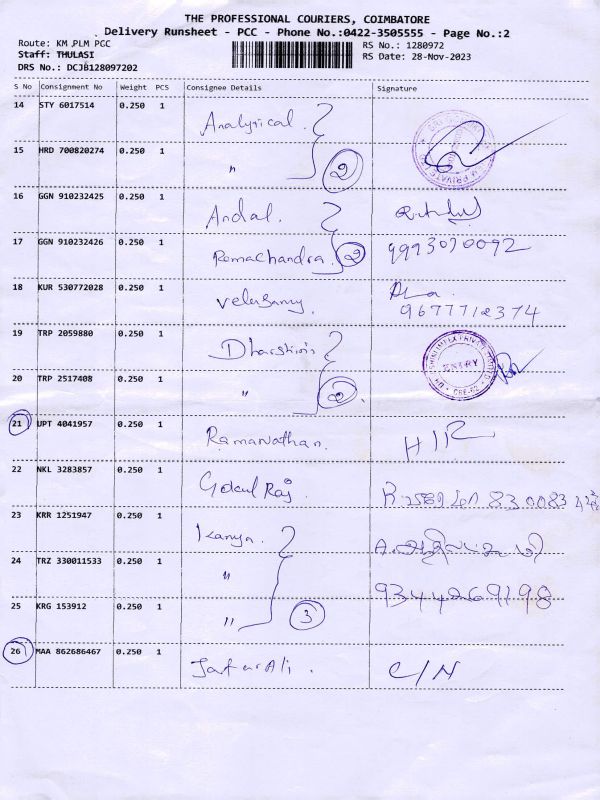 THE PROFESSIONAL COURIERS, COIMBATORE
Delivery Runsheet - PCC - Phone No.:0422-3505555 - Page No.:2
Route: KM PLM PCC
RS No.: 1280972
Staff: THULASI
RS Date: 28-Nov-2023
DRS No.: DCJB128097202
S No Consignment No Weight PCS Consignee Details Signature
14 STY 6017514 0.250 1 Analytical
15 HRD 700820274 0.250 1 " 2
16 GGN 910232425 0.250 1 Andal.
17 GGN 910232426 0.250 1 Ramachandra 2 9993070092
18 KUR 530772028 0.250 1 Velusamy
9677712374
19 TRP 2059880 0.250 1 Dharshini ENTRY
20 TRP 2517408 0.250 1 " 2
21 UPT 4041957 0.250 1 Ramanathan
22 NKL 3283857 0.250 1 Gokul Raj
23 KRR 1251947 0.250 1 Kanya
24 TRZ 330011533 0.250 1 " 9344269198
25 KRG 153912 0.250 1 " 3
26 MAA 862686467 0.250 1 Jafar Ali . C/N